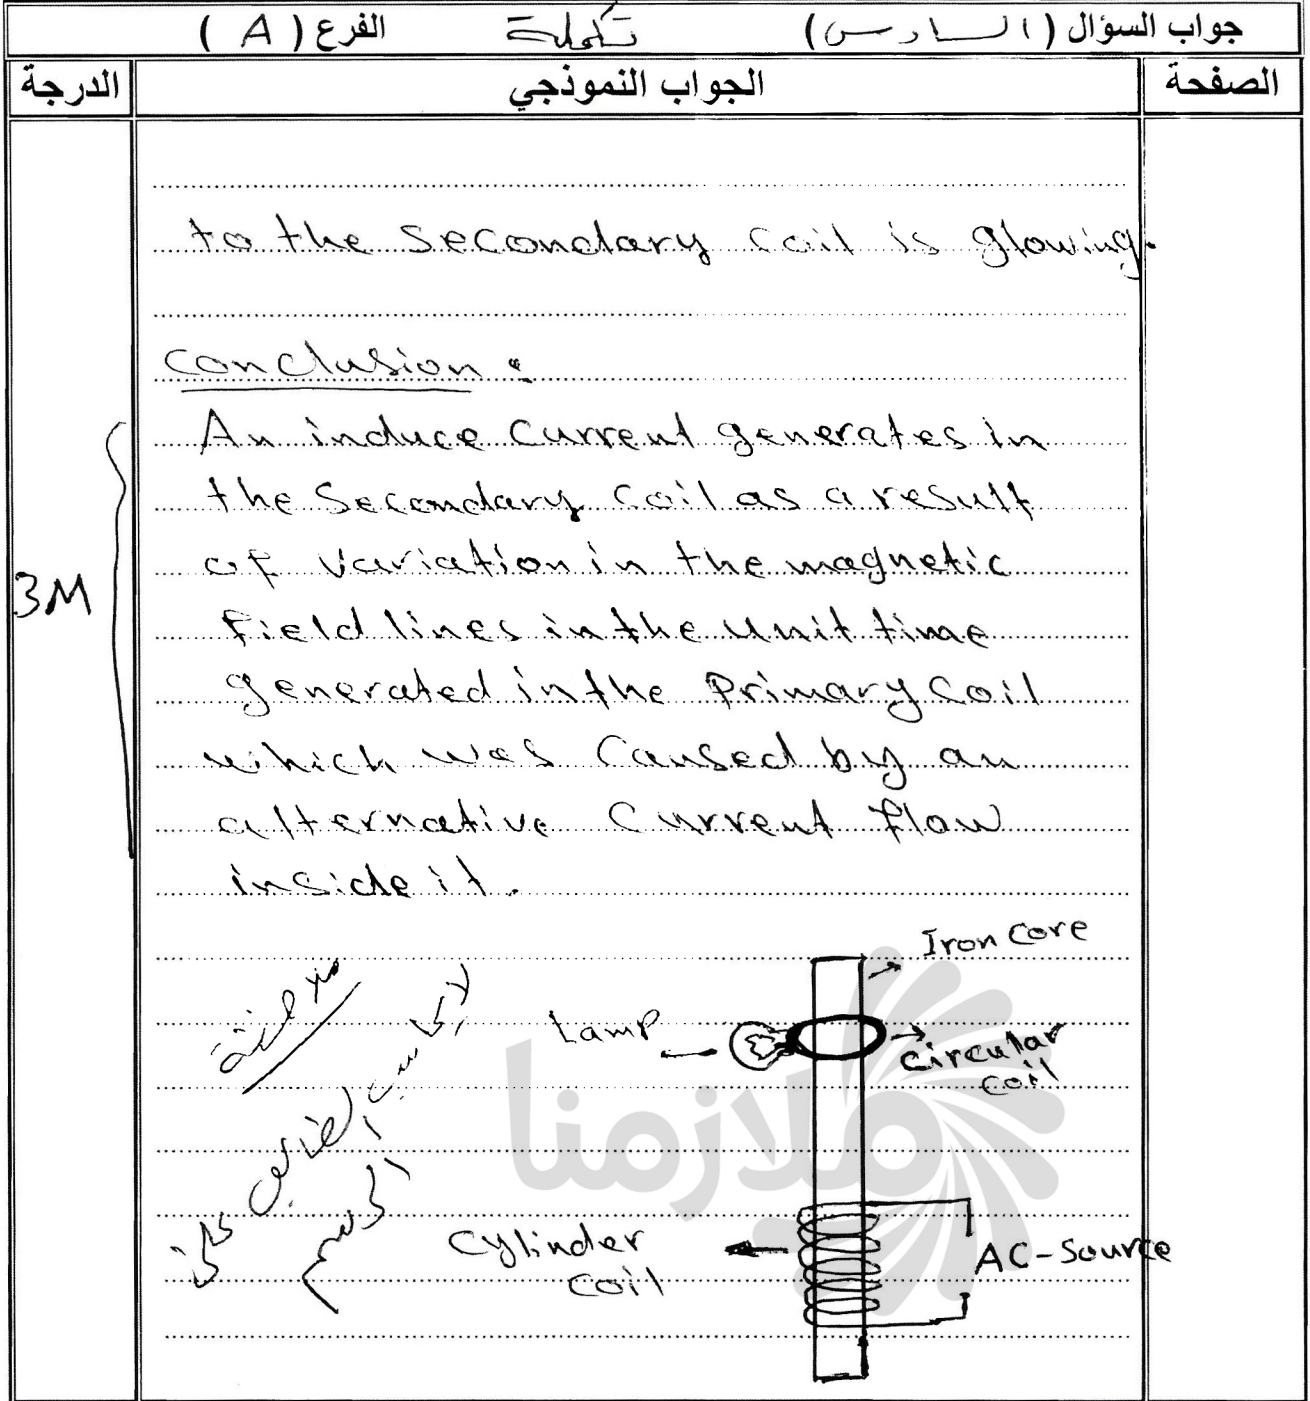 جواب السؤال ( السادس ) تكملة الفرع ( A )
الصفحة الجواب النموذجي الدرجة
to the Secondary Coil is glowing.
Conclusion :
An induce Current generates in
the Secondary Coil as a result
of Variation in the magnetic
3M
Field lines in the Unit time
generated in the Primary Coil
which was Caused by an
alternative Current flow
inside it.
Iron Core
Lamp
Circular
Coil
ملاحظة
لا يحاسب الطالب على
الرسم
ملازمنا
Cylinder
Coil
AC-Source